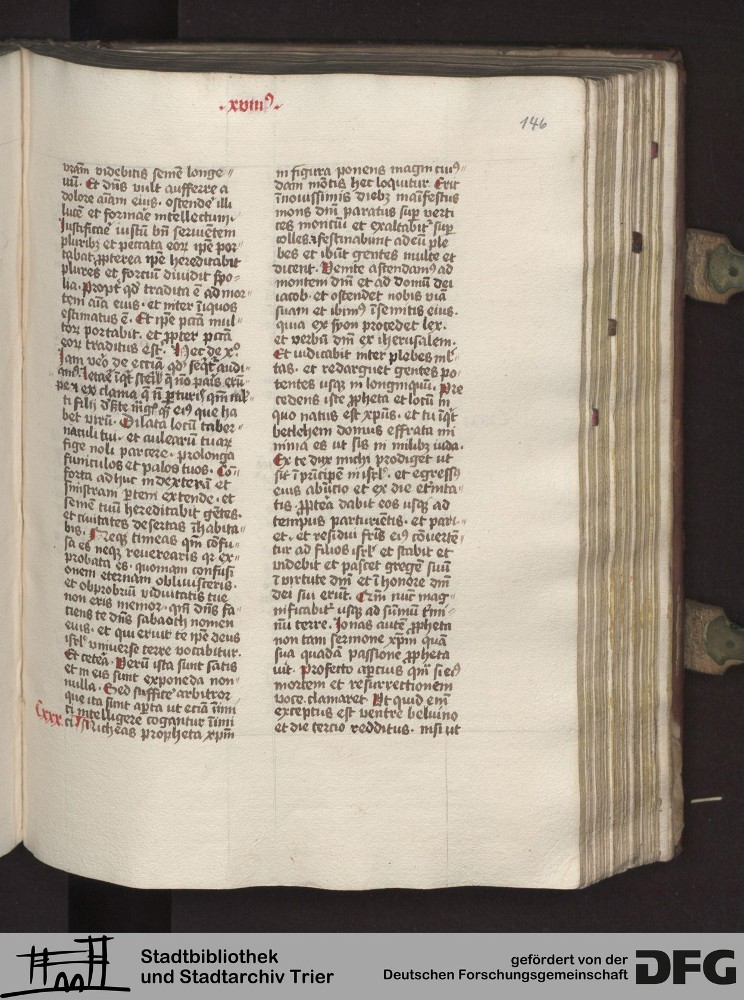 ·xviiiꝰ·
146
vr̄am videbitis semē longe
uū. Et dn̄s vult aufferre a
dolore aīam eius. ostendē illi
lucē et formāe intellectum.
Iustificāe iustū bn̄ seruētem
pluribꝫ et peccata eoꝝ ip̄e por
tabat. ꝓpterea ip̄e hereditabit
plures et fortiū diuidit spo
lia. Propt̄ qd̓ tradita ē ad mor
tem aīa eius. et inter īiquos
estimatus ē. Et ip̄e pccā mul
toꝝ portabit. et ꝓpter pccā
eoꝝ traditus est. Hec de xꝰ.
Iam vero de ecc̄ia qd̓ seqt̄ audi
ti filii
bet virū. Dilata locū taber
naculi tui. et aulearū tuaꝝ
fige noli parcere. prolonga
funiculos et palos tuos. Cō
forta adhuc in dexterā et
sinistram ꝑtem extende. et
semē tuū hereditabit gētes.
et ciuitates desertas īhabita
bis. Neqꝫ timeas qm̄ cōfu
sa es neqꝫ reuerearis qꝛ ex
probata es. quoniam confusi
onem eternam obliuisceris.
et obprobriū viduitatis tue
non eris memor. qm̄ dn̄s fa
ciens te dn̄s sabaoth nomen
eius. et qui eruit te ip̄e deus
isrl̓ vniuerse terre vocabitur.
Et cetēa. Verū ista sunt satis
et in eis sunt exponēda non
nulla. Sed sufficē arbitror
que ita sunt aꝑta ut eciā īimi
ci intelligere cogantur īimi
Cxxx. ci Micheas propheta xp̄m
in figura ponens magni cuiꝰ
dam mōtis hec loquitur. Erit
ī nouissimis diebꝫ maīfestus
mons dn̄i paratus suꝑ verti
ces montiū et exaltabit̄ suꝑ
colles. et festinabunt ad eū ple
bes et ibūt gentes multe et
dicent. Venite ascendamꝰ ad
montem dn̄i et ad domū dei
iacob. et ostendet nobis viā
suam et ibimꝰ ī semitis eius.
quia ex syon procedet lex.
et verbū dn̄i ex iherusalem.
Et iudicabit inter plebes ml̓
tas. et redarguet gentes po
tentes usqꝫ in longinquū. Pre
cedens iste ꝓpheta et locū in
quo natus est xp̄us. et tu īqt̄
betlehem domus effrata mi
nima es ut sis in milibꝫ iuda.
Ex te dux michi prodiget ut
sit ī prīcipem ī isrl̓. et egressꝰ
eius ab īicio et ex die etīnita
tis. ꝓpt̄ea dabit eos usqꝫ ad
tempus parturiētis. et pari
et. et residui fr̄is eiꝰ cōuertē
tur ad filios isrl̓ et stabit et
videbit et pascet gregē suū
ī virtute dn̄i et ī honore dn̄i
dei sui erūt. Qm̄ nūc mag
nificabit̄ usqꝫ ad sūmū t̄mi
nū terre. Ionas autē ꝓpheta
non tam sermone xp̄m quā
sua quadā passione ꝓpheta
uit. profecto aꝑcius qm̄ si eiꝰ
mortem et resurrectionem
voce clamaret. Ut quid em̄
exceptus est ventre beluino
et die tercio redditus. nisi ut
Stadtbibliothek
und Stadtarchiv Trier
gefördert von der
Deutschen Forschungsgemeinschaft
DFG